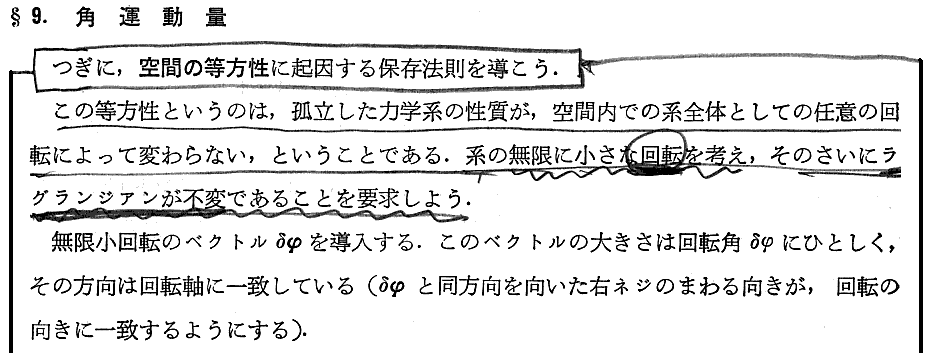 §9. 角運動量
つぎに，空間の等方性に起因する保存法則を導こう．
この等方性というのは，孤立した力学系の性質が，空間内での系全体としての任意の回
転によって変わらない，ということである．系の無限に小さな回転を考え，そのさいにラ
グランジアンが不変であることを要求しよう．
無限小回転のベクトル δφ を導入する．このベクトルの大きさは回転角 δφ にひとしく，
その方向は回転軸に一致している（δφ と同方向を向いた右ネジのまわる向きが，回転の
向きに一致するようにする）．